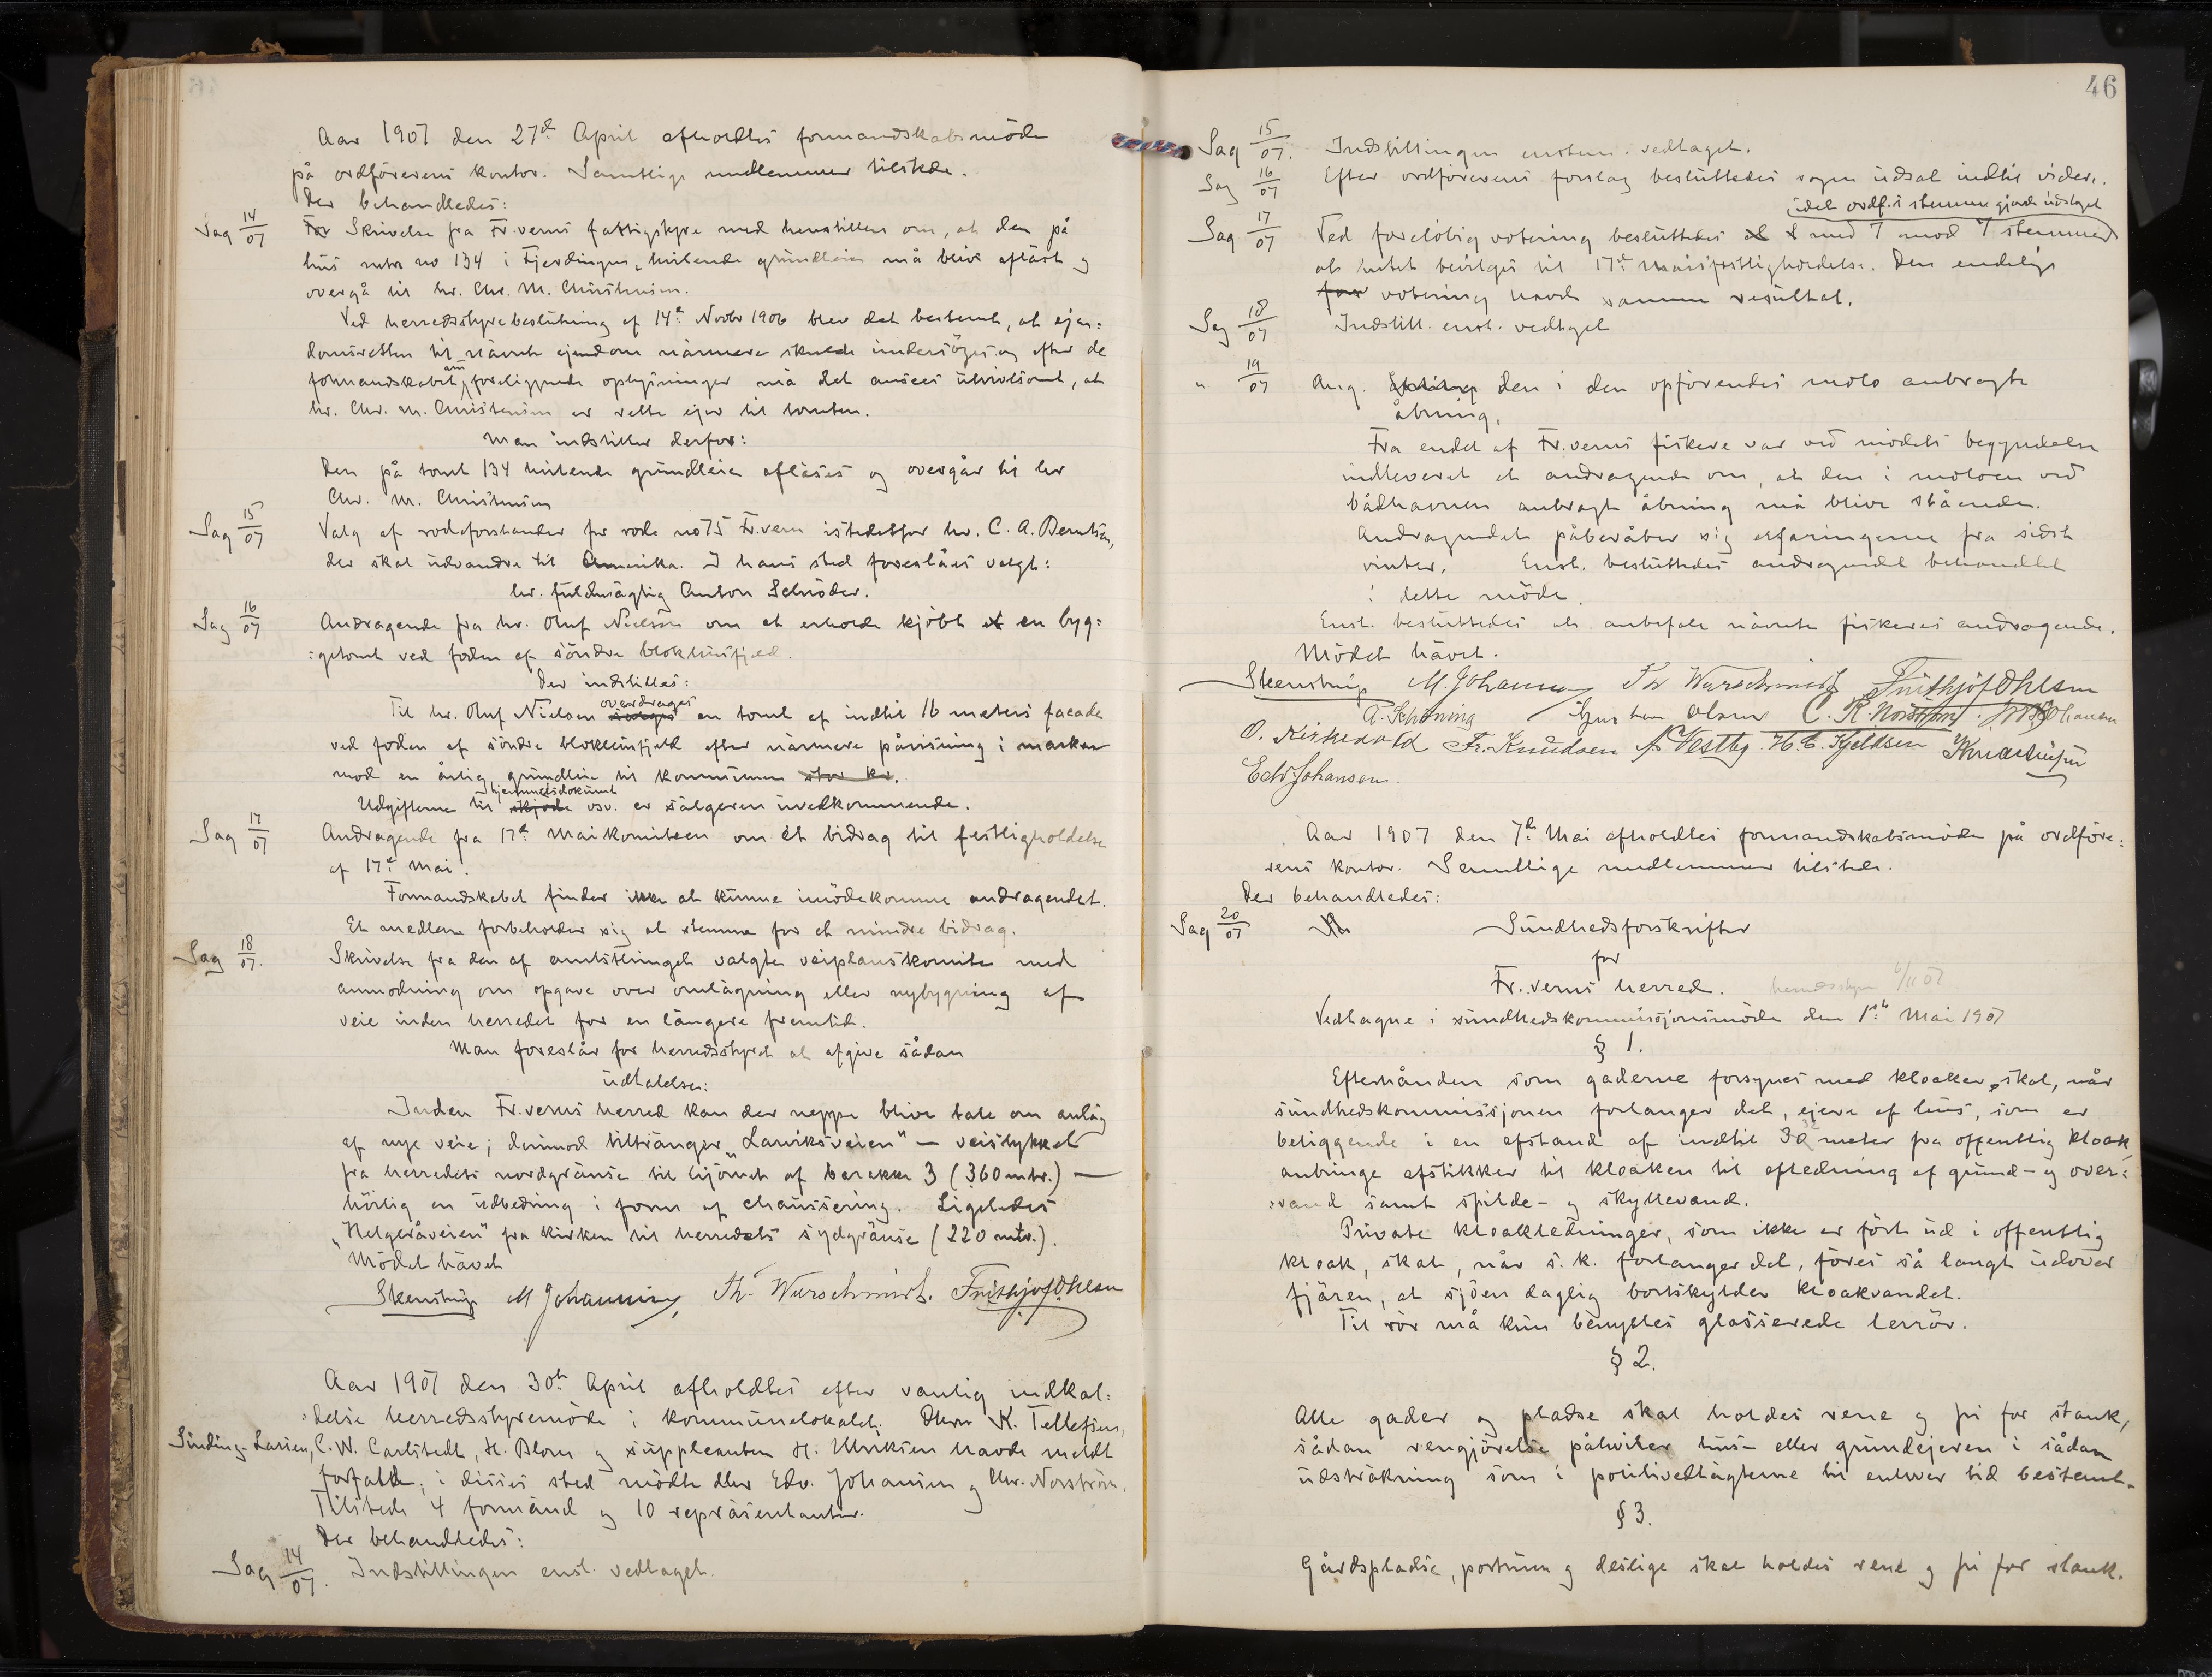 Aar 1907 den 27de April afholdtes formandskabsmöde
på ordförerens kontor. Samtlige medlemmer tilstede.
Der behandledes:
Sag 14/07 For Skrivelse fra Fr.verns fattigstyre med henstillen om, at den på
hus matr no 134 i Fjerdingen, hvilende grundleie må blive aflöst og
overgå til hr. Chr. M. Christensen.
Ved herredsstyrebeslutning af 14de Novbr 1906 blev det bestemt, at ejen=
domsretten til nävnte ejendom närmere skulde undersöges og efter de
formandskabet foreliggende oplysninger må det ansees utvivlsomt, at
hr. Chr. M. Christensen er rette ejer til tomten.
Man indstiller derfor:
Den på tomt 134 hvilende grundleie aflöses og overgår til hr
Chr. M. Christensen
Sag 15/07 Valg af rodeforstander for rode no 75 Fr.vern istedetfor hr. C. A. Berntsen,
der skal udvandre til Amerika. I hans sted foreslåes valgt:
hr. fuldmägtig Anton Schröder.
Sag 16/07 Andragende fra hr. Oluf Nielsen om at erholde kjöbt et en byg=
=getomt ved foden af söndre blokhusfjeld.
Der indstilles:
Til hr. Oluf Nielsen overdrages en tomt af indtil 16 meters facade
ved foden af söndre blokhusfjeld efter närmere påvisning i marken
mod en årlig grundleie til kommunen stor kr.
Udgifterne til hjemmelsdokument skjöde osv. er sälgeren uvedkommende.
Sag 17/07 Andragende fra 17de Maikomiteen om et bidrag til festligholdelse
af 17de Mai.
Formandskabet finder ikke at kunne imödekomme andragendet.
Et medlem forbeholder sig at stemme for et mindre bidrag.
Sag 18/07. Skrivelse fra den af amtsthinget valgte veiplanskomite med
anmodning om opgave over omlägning eller nybygning af
veie inden herredet for en längere fremtid.
Man foreslår for herredsstyret at afgive sådan
udtalelse:
Inden Fr.verns herred kan der neppe blive tale om anläg
af nye veie; derimod tiltränger „Larviksveien" – veistykket
fra herredets nordgränse til hjörnet af barakke 3 (360 mtr.) —
hårlig en udbedring i form af chaussering. Ligeledes
„Helgeråveien" fra kirken til herredets sydgränse (220 mtr.).
Mödet hävet
Steenstrup M Johannesen Th. Wurschmidt. Frithjof Ohlsen
Aar 1907 den 30te April afholdtes efter vanlig indkal=
=delse herredsstyremöde i kommunelokalet. Dhrr K. Tellefsen,
Sinding-Larsen, C. W. Carlstedt, H. Blom og suppleanten H. Ulriksen havde meldt
forfald; i disses sted mödte dhr Edv. Johansen og Chr. Norström.
Tilstede 4 formänd og 10 repräsentanter.
Der behandledes:
Sag 14/07. Indstillingen enst. vedtaget.
46
Sag 15/07. Indstillingen enstem. vedtaget.
Sag 16/07 Efter ordförerens forslag besluttedes sagen udsat indtil videre.
idet ordf.s stemme gjorde udslaget
Sag 17/07 Ved forelöbig votering besluttedes at med 7 mod 7 stemmer
at intet bevilges til 17de Maisfestligholdelse. Den endelige
for votering havde samme resultat.
Sag 18/07 Indstill. enst. vedtaget
" 19/07 Ang. den i den opförendes molo anbragte
åbning.
Fra endel af Fr.verns fiskere var ved mödets begyndelse
indleveret et andragende om, at den i moloen ved
bådhavnen anbragte åbning må blive stående.
Andragendet påberåber sig erfaringerne fra sidste
vinter. Enst. besluttedes andragendet behandlet
i dette möde.
Enst. besluttedes at anbefale nävnte fiskeres andragende.
Mödet hävet.
Steenstrup M. Johannesen Th Wurschmidt Frithjof Ohlsen
A. Schöning Gustav Olsen C. R. Norström. Johansen
O. Kirkevold Fr. Knudsen Vestby. H. C. Kjeldsen
Edv Johansen.
Aar 1907 den 7de Mai afholdtes formandskabsmöde på ordföre=
rens kontor. Samtlige medlemmer tilstede.
Der behandledes:
Sag 20/07 Sundhedsforskrifter
for
Fr.verns herred. herredsstyre 6/11 07
Vedtagne i sundhedskommissjonsmöde den 1ste Mai 1907
§ 1.
Efterhånden som gaderne forsynes med kloaker, skal, når
sundhedskommissjonen forlanger det, ejere af hus, som er
beliggende i en afstand af indtil 30 meter fra offentlig kloak
anbringe afstikker til kloaken til afledning af grund- og over=
=vand samt spilde- og skyllevand.
Private kloakledninger, som ikke er fört ud i offentlig
kloak, skal, når s. k. forlanger det, föres så langt udover
fjären, at sjöen daglig bortskyller kloakvandet.
Til rör må kun benyttes glasserede lerrör.
§ 2.
Alle gader og pladse skal holdes rene og fri for stank,
sådan rengjörelse påhviler hus- eller grundejeren i sådan
udsträkning som i politivedtägterne til enhver tid bestemt.
§ 3.
Gårdspladse, portrum og deslige skal holdes rene og fri for stank.